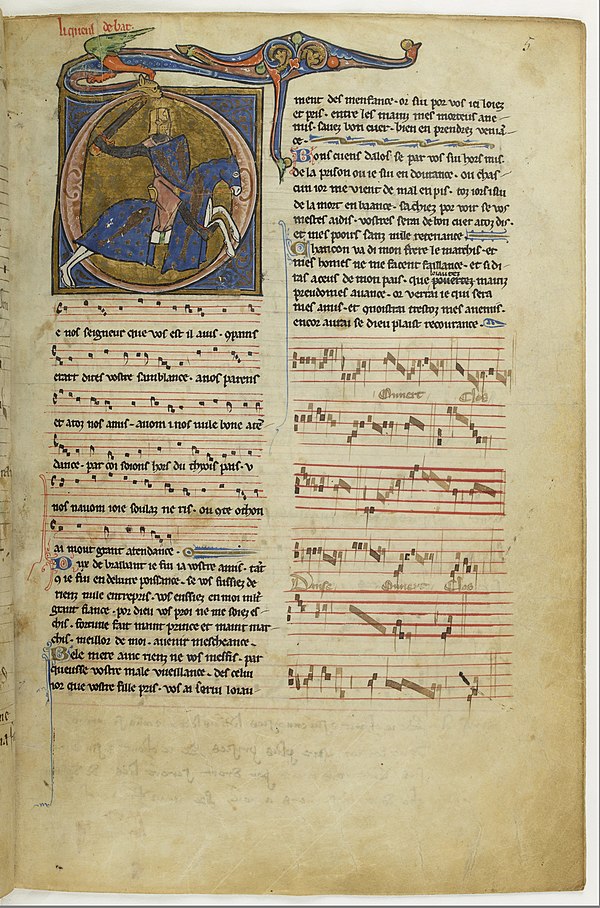 li quens de bar.
5
e nos seigneur que vos est il auis.
estait dites vostre samblance. a nos parens
et a toz nos amis. auom i nos nule bone atē
dance. par coi soions hors du thyois pais. v
nos nauom ioie soulaz ne ris. ou cōte othon
ai mout grant atendance.
Dux de braibant ie fui ia vostre amis. tāt
ie fui en deliure poissance. se vos fussiez de
riens nule entrepris. vos eussiez en moi mlt
grant fiance. por dieu vos proi ne me soiez es
chis. fortune fait maint prince et maint mar
chis. meillor de moi. auenir mescheance.
Bele mere aînc riens ne vos meffis. par
queusse vostre male vueillance. des celui
ior que vostre fille pris. vos ai serui loiau
ment des menfance. or sui por vos ici loiez
et pris. entre les mains mes morteus ane
mis. sauez bon cuer. bien en prendrez venia
ce.
Bons cuens dalos se par vos sui hors mis.
de la prison ou ie sui en doutance. ou chas
cun ior me vient de mal en pis. toz iors i sui
de la mort en baance. sachiez por voir se vos
mestes aidis. vostres serai de bon cuer a toz dis.
et mes pooirs sanz nule retenance.
Chancon va di mon frere le marchis. et
mes homes ne me facent faillance. et si di
ras a ceus de mon pais. que pouertez mainz
biautez
preudomes auance. or verrai ie qui sera
mes amis. et quoistrai trestoz mes anemis.
encor aurai se dieu plaist recourance.
Ouuert Clos
Danse Ouuert Clos